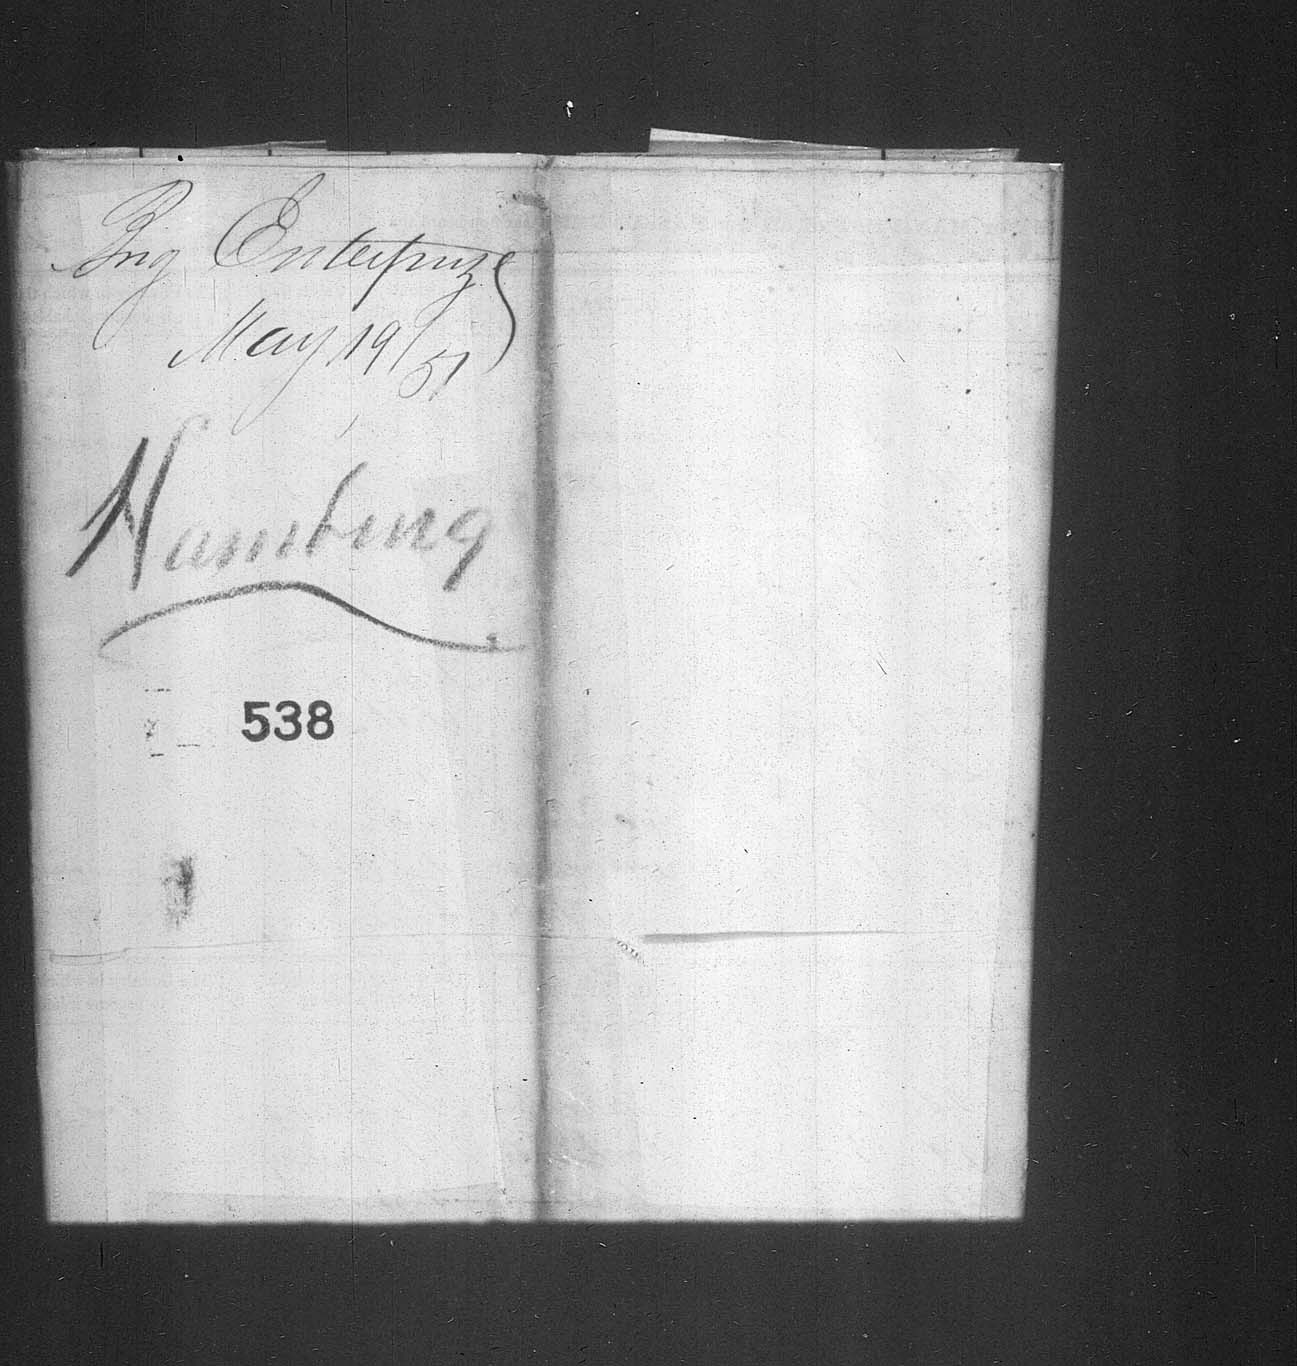 Brig Enterprize
May 19/51
Hamburg
538